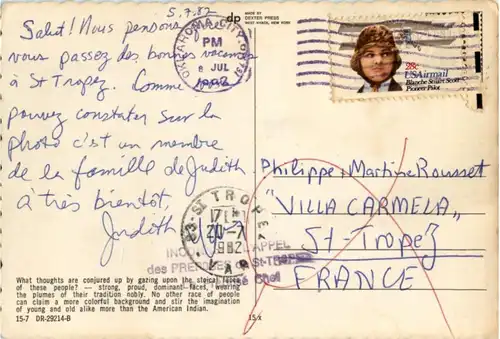 5.7.82
Salut! Nous pensons que
vous passez des bonnes vacances
à St Tropez. Comme vous
pouvez constater sur la
photo c'est un membre
de la famille de Judith.
à très bientôt,
Judith
What thoughts are conjured up by gazing upon the stoical faces
of these people? — strong, proud, dominant faces, wearing
the plumes of their tradition nobly. No other race of people
can claim a more colorful background and stir the imagination
of young and old alike more than the American Indian.
15-7 DR-29214-B
dp
MADE BY
DEXTER PRESS
WEST NYACK, NEW YORK
OKLAHOMA CITY
PM
8 JUL
1982
28c
USAirmail
Blanche Stuart Scott
Pioneer Pilot
Philippe, Martine Rousset
"VILLA CARMELA"
St-Tropez
FRANCE
83-ST TROPEZ
17H
20-7
1982
VAR
APPEL
des PREPOSES ST-TROPEZ
Chef
15 x